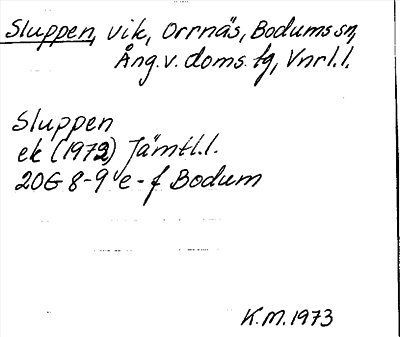 Sluppen, vik, Orrnäs, Bodums sn,
Ång. v. doms. tg, Vnrl. l.
Sluppen
ek (1972) Jämtl. l.
20G 8-9 e-f Bodum
K.M. 1973